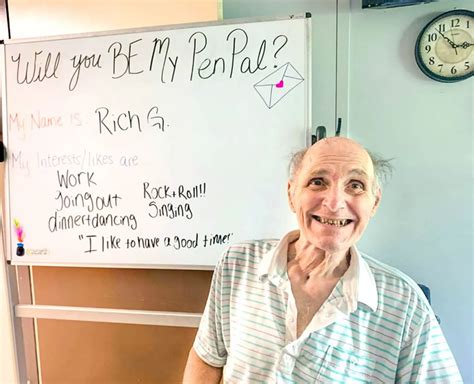 Will you BE My PenPal?
My Name is Rich G.
My Interests/likes are
Work
going out
dinner+dancing
Rock+Roll!!
Singing
"I like to have a good time"